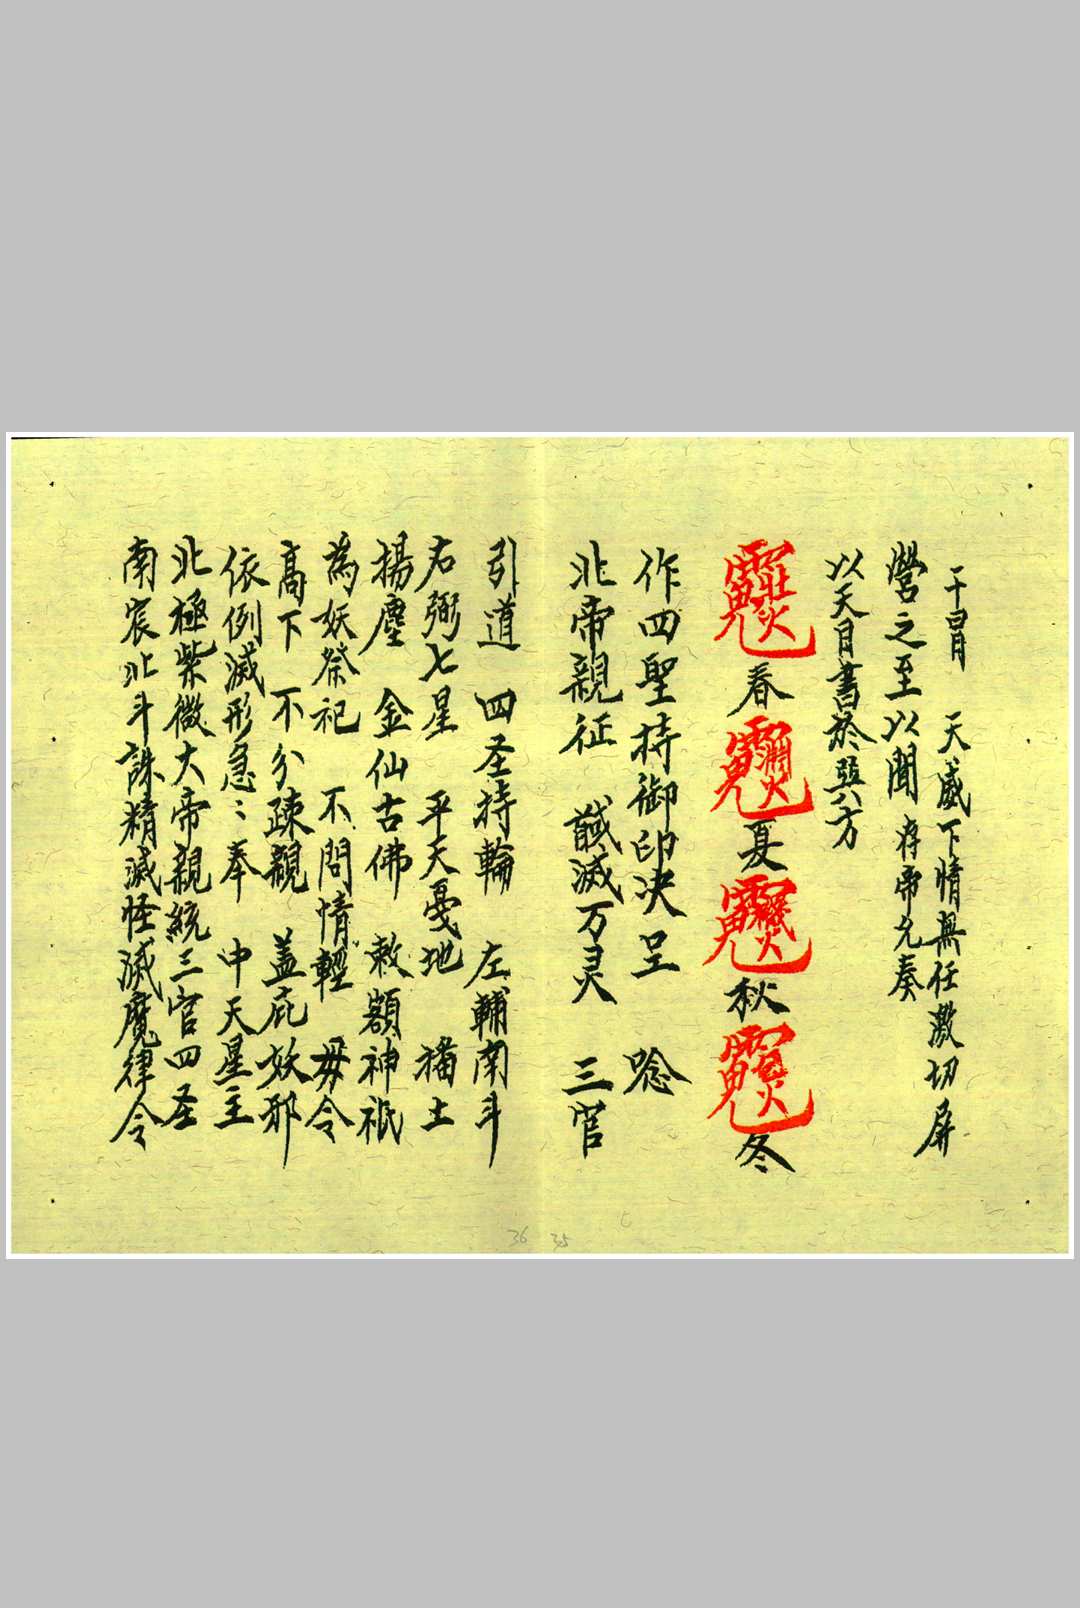 干冒 天威下情無任激切屏
營之至以聞 存帝允奏
以天目書於巽方
春 夏 秋 冬
作四聖持御印决呈 唸
北帝親征 馘滅万灵 三官
引道 四圣持輪 左輔南斗
右弼七星 平天憂地 播土
揚塵 金仙古佛 敕額神祇
為妖祭祀 不問情輕 毋令
高下 不分疎親 盖庇妖邪
依例滅形急〻奉 中天星主
北極紫微大帝親統三官四圣
南宸北斗誅精滅怪滅魔律令
36 35